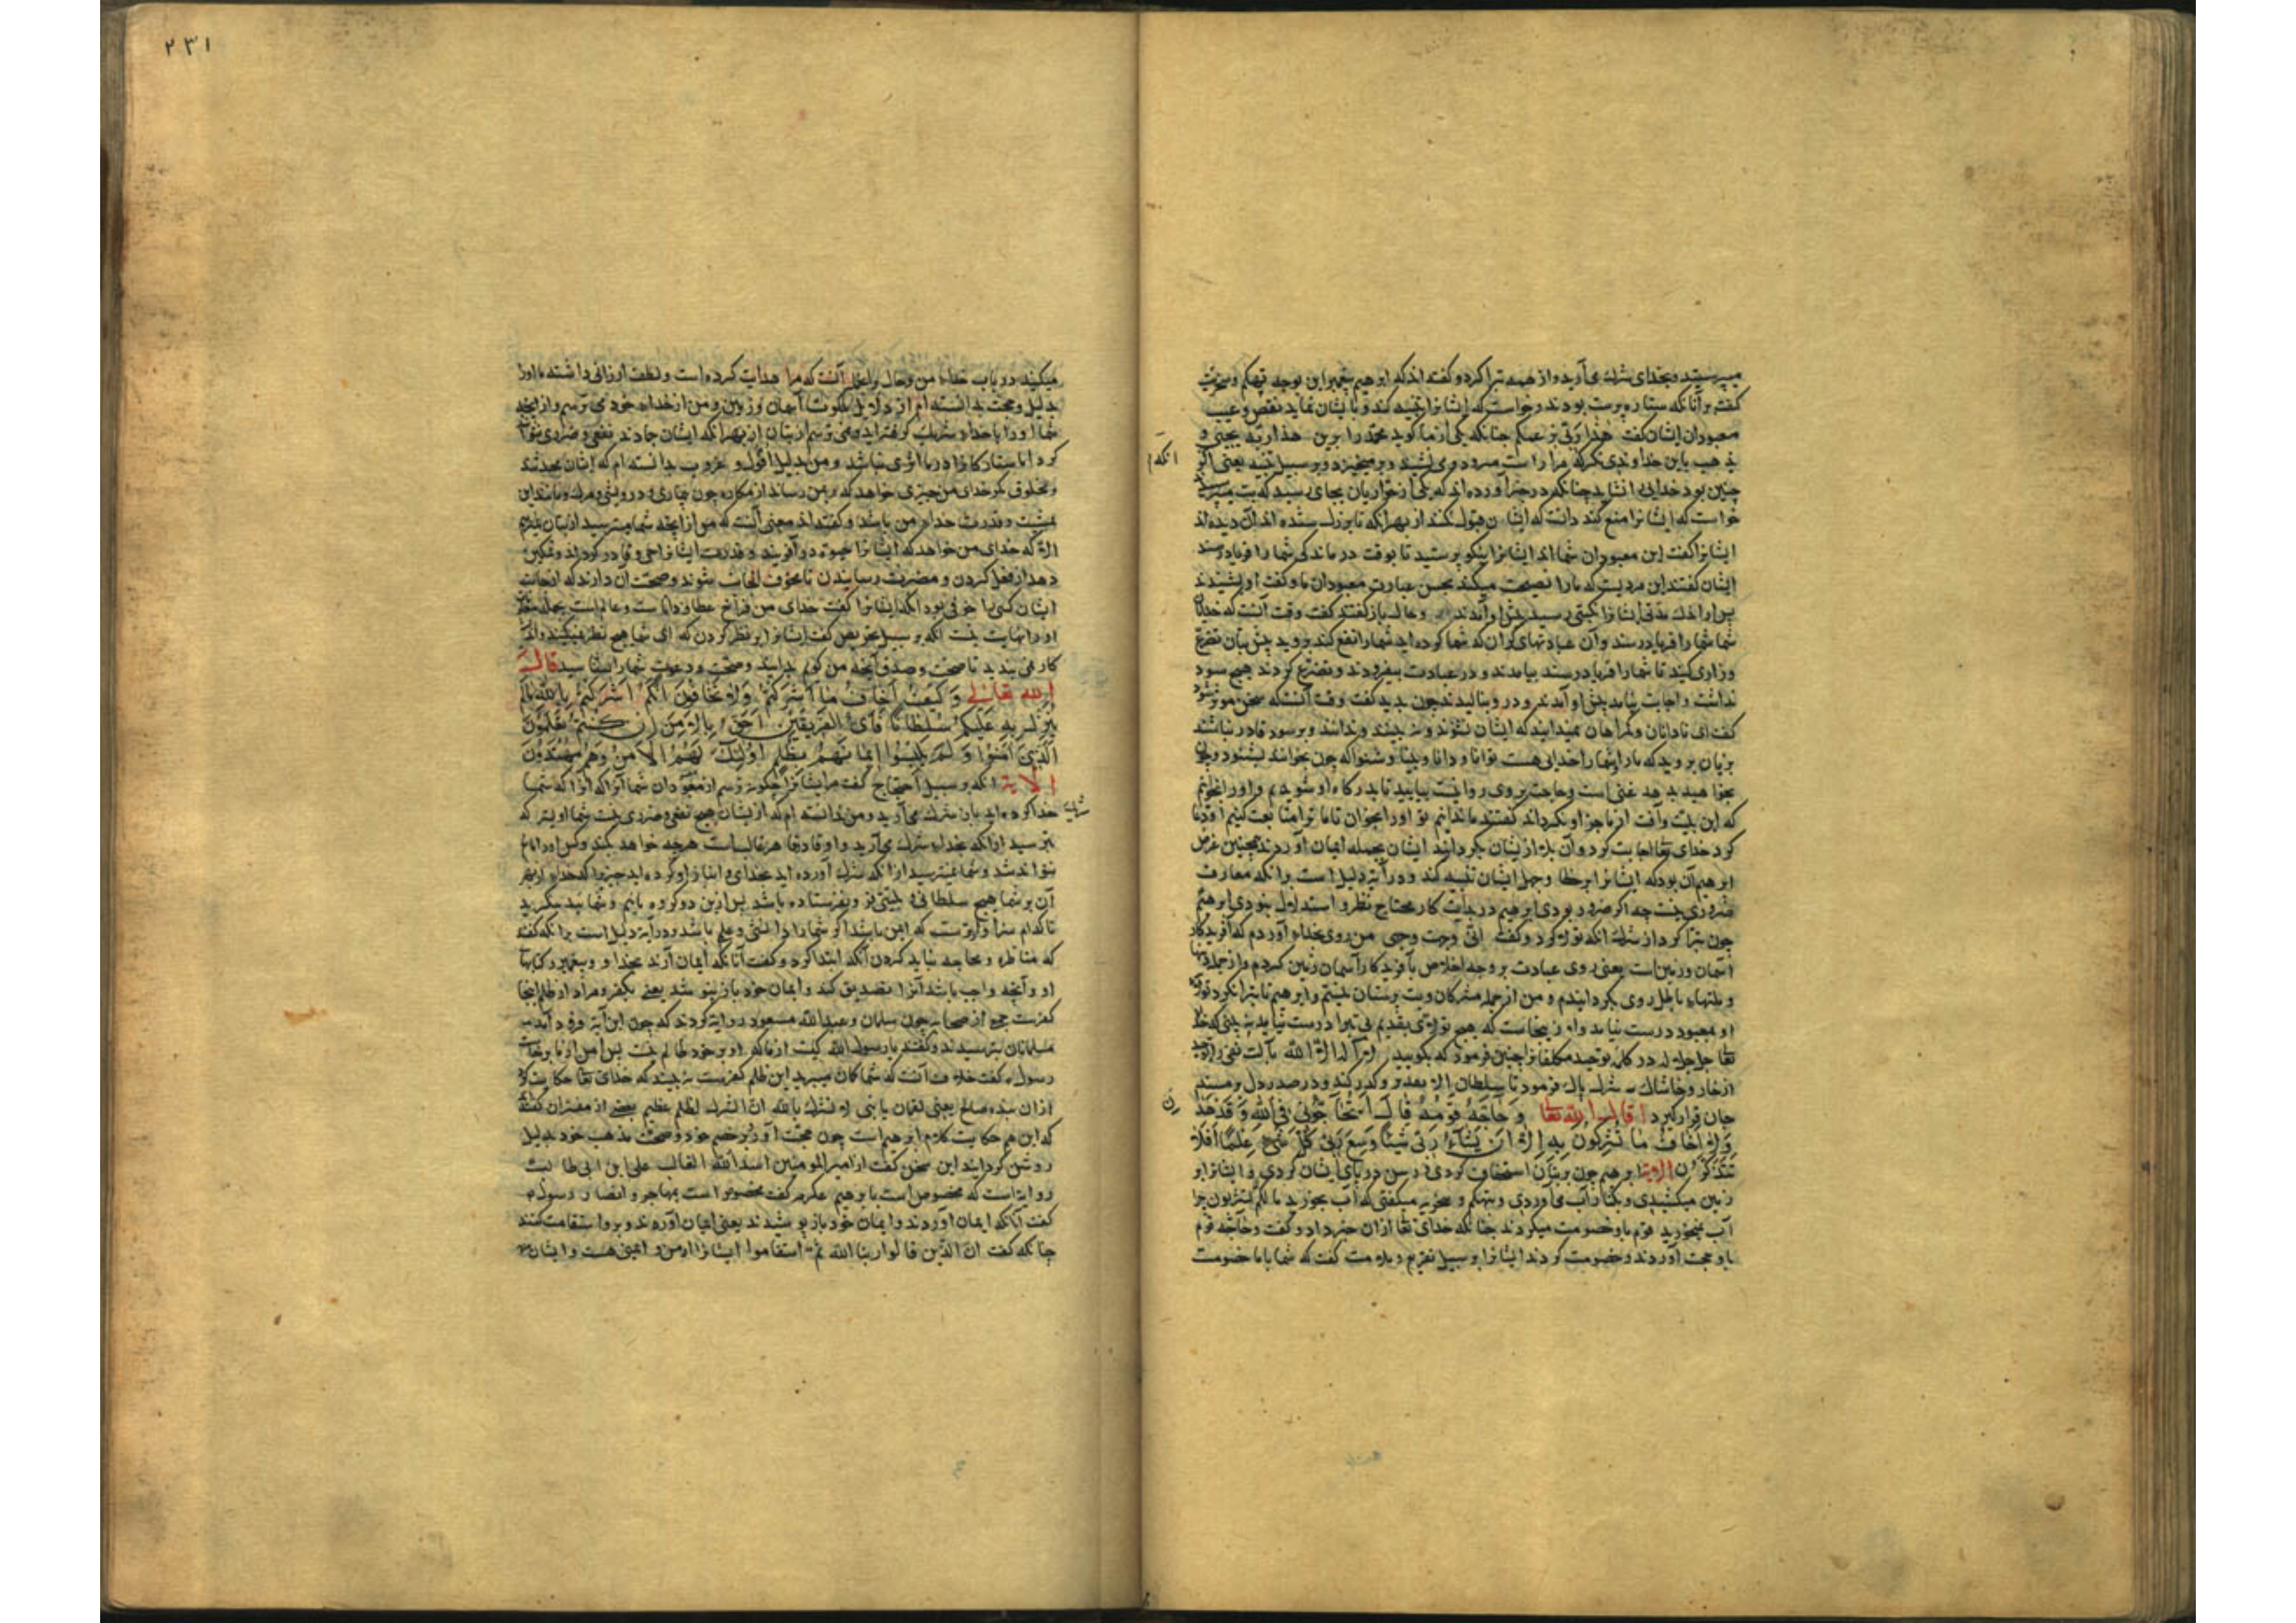 میپرستید و بخدای شرك می‌آرید و از همه تبرا کرد و گفته اند که ابرهیم پیغمبر این بوجه تهکم و سخریت
گفت بر آنانکه ستاره پرست بودند و خواست که ایشانرا تنبیه کند و بایشان نماید نقص و عیب
معبودان ایشان گفت هذا ربی بزعمکم چنانکه یکی از ما گوید محمد را برین هذا ربه یجیئ و
یذهب باین خداوندی نگر که مرا راست میرود و می‌نشیند و برمیخیزد و بر سبیل تنبیه یعنی اگر
انکه
چنین بود خدایی را نشاید چنانکه در خبر آورده اند که یکی از حواریان بجای رسید که بت میپرستیدند
خواست که ایشانرا منع کند دانست که ایشان قبول نکنند از بهر انکه تا بزرگ شده اند آن دیده اند
ایشانرا گفت این معبودان شما اند ایشانرا نیکو پرستید تا بوقت درماندگی شما را فریاد رسند
ایشان گفتند این مردیست که ما را نصیحت میکند بحسن عبادت معبودان ما و گفت او بشنیدند
پس از اندك مدتی ایشانرا نکبتی رسید پیش او آمدند و حال باز گفتند گفت وقت آنست که خدایان
شما شما را فریاد رسند و آن عبادتهای گران که شما کرده اید شما را نفع کند بروید پیش بتان تضرع
و زاری کنید تا شما را فریاد رسند بیامدند و در عبادت بیفزودند و تضرع کردند هیچ سود
نداشت و اجابت نیامد پیش او آمدند و در و بنالیدند چون بدید گفت وقت آنست که سخن موثر شود
گفت ای نادانان و گمراهان نمیدانید که ایشان نشنوند و نه بینند و ندانند و بر سود قادر نباشند
بزیان بروید که ما را و شما را خدایی هست توانا و دانا و بینا و شنوا که چون بخوانند بشنود و چون
بخواهید بدهد غنی است و حاجت بروی روا نیست بیایید تا بدرگاه او شویم و او را بخوانیم
که این بلیت و آفت از ما جز او نگرداند گفتند ما ندانیم تو او را بخوان تا ما ترا متابعت کنیم او دعا
کرد خدای تعا اجابت کرد و آن بلا از یشان بگردانید ایشان بجمله ایمان آوردند همچنین غرض
ابرهیم آن بود که ایشانرا بر خطا و جهل ایشان تنبیه کند و در آیة دلیل است بر انکه معارف
ضروری نیست چه اگر ضرور بودی ابرهیم در بدایت کار محتاج نظر و استدلال نبودی ابرهیم
چون تبرا کرد از شرك انکه تولا کرد و گفت انی وجهت وجهی من روی بخدای آوردم که آفریدگار
آسمان و زمین است یعنی روی عبادت بر وجه اخلاص بآفریدگار آسمان زمین کردم و از جمله دینها
و ملتهاء باطل روی بگردانیدم و من از جمله مشرکان و بت پرستان نیستم و ابرهیم تا تبرا نکرد تولا
او بمعبود درست نیامد و از ینجاست که هیچ تولای بی تقدیم تبرا درست نیاید نه بینی که خدای
تعا جل جلاله در کلمه توحید مکلفانرا چنین فرمود که بگویید لا اله الا الله بآلت نفی راه توحید
از خار و خاشاك شرك پاك فرمود تا سلطان الا بعد بر و گذر کند و در صدر دل بر مسند
جان قرار گیرد قال الله تعا وَ حَاجَّهُ قَوْمُهُ قَالَ اَتُحَآجُّونِّی فِی اللهِ وَ قَدْ هَدَ
ن
وَ لا اَخَافُ مَا تُشْرِکُونَ بِهِ اِلاّ اَنْ یَشَآءَ رَبِّی شَیْئًا وَسِعَ رَبِّی کُلَّ شَیْءٍ عِلْمًا اَفَلا
تَتَذَکَّرُونَ الآیة ابرهیم چون بر بتان استخفاف کردی و رسن در پای ایشان کردی و ایشانرا بر
زمین میکشیدی و بکنار آب می‌آوردی و بتهکم و سخریه میگفتی که آب بخورید ما لکم لا تشربون چرا
آب نمیخورید قوم با و خصومت میکردند چنانکه خدای تعا از آن خبر داد و گفت و حآجه قوم
با و حجت آوردند و خصومت کردند ایشانرا بر سبیل تقریع و ملامت گفت که شما با ما خصومت
۲۳۱
میکنید در باب خداء من و حال و اعلم آنست که مرا هدایت کرده است و لطف ارزانی داشته تا او را
بدلیل و حجت بدانسته ام از دلایل ملکوت آسمان و زمین و من از خداء خود می ترسم و از آنچه
شما او را با خداء شریك گرفته اید نمی ترسم از بتان از بهر انکه ایشان جمادند نفع و ضرری نتوانند
کرد اما ستارگانرا در ما اثری نباشد و من بدلیل افول و غروب بدانسته ام که ایشان محدثند
و مخلوق مگر خدای من چیزی خواهد که بمن رساند از مکاره چون بیماری و درویشی و مرگ و مانند این
بمشیت و قدرت خداء من باشد و گفته اند معنی آنست که من از آنچه شما میترسید از بتان نترسم
الا که خدای من خواهد که ایشانرا حیوة در آفریند و قدرت ایشانرا حی و قادر گرداند و تمکین
دهد از فعل کردن و مضرت رسانیدن تا مخوف الجانب شوند و صحت آن دارند که از جانب
ایشان کسی را خوفی بود انکه ایشانرا گفت خدای من فراخ عطا و داناست و عالم است بجمله
او را نهایت نیست انکه بر سبیل تحریض گفت ایشانرا بر نظر کردن که ای شما هیچ نظر نمیکنید و اندیشه
کار نمی بندید تا صحت و صدق آنچه من گویم بدانید و صحت دعوت شما را شناسید قال
الله تعالی وَ کَیْفَ اَخَافُ مَا اَشْرَکْتُمْ وَلا تَخَافُونَ اَنَّکُمْ اَشْرَکْتُمْ بِاللهِ مَالَمْ
یُنَزِّلْ بِهِ عَلَیْکُمْ سُلْطَانًا فَاَیُّ الْفَرِیقَیْنِ اَحَقُّ بِالاَمْنِ اِنْ کُنْتُمْ تَعْلَمُونَ
اَلَّذِینَ آمَنُوا وَ لَمْ یَلْبِسُوا اِیمَانَهُمْ بِظُلْمٍ اُولٰئِكَ لَهُمُ الاَمْنُ وَ هُمْ مُهْتَدُونَ
الآیة انکه بر سبیل احتجاج گفت مر ایشانرا چگونه ترسم از معبودان شما آنرا که شما
خدا کرده اید بآن شرك می‌آرید و من دانسته ام که از یشان هیچ نفع و ضرری نیست شما اولیتر که
بترسید از انکه بخداء شرك می‌آرید و او قادر قاهر غالب است هر چه خواهد بکند و کس او را مانع
نتواند شد و شما نمیترسید از انکه شرك آورده اید بخدای و انباز او کرده اید چیزی را که خداء از بهر
آن بر شما هیچ سلطانی و بینتی و نفرستاده باشد پس ازین دو گروه ماییم و شمائید بنگرید
تا کدام سزاوارترست که ایمن باشد اگر شما را دانشی و علم باشد و در آیة دلیل است بر انکه گفت
که مناظره و محاجه نباید کردن انکه ابتدا کرد و گفت آنانکه ایمان آرند بخدا و پیغمبر و کتابها
او و آنچه واجب باشد آنرا تصدیق کند و ایمان خود باز نپوشد یعنی بکفر و مراد از ظلم اینجا
کفرست جمعی از صحابه چون سلمان و عبد الله مسعود روایة کردند که چون این آیة فرود آمد
مسلمانان بترسیدند و گفتند یا رسول الله کیست از ما که او بر خود ظالم نیست پس امن از ما برخاست
رسول ع گفت خلاف آنست که شما گمان میبرید این ظلم کفرست نه بینید که خدای تعا حکایت کرد
از آن بنده صالح یعنی لقمان یا بنی لا تشرك بالله ان الشرك لظلم عظیم بعضی از مفسران گفتند
که این هم حکایت کلام ابرهیم است چون حجت آورد بر خصم خود و صحت مذهب خود بدلیل
روشن گردانید این سخن گفت از امیر المومنین اسد الله الغالب علی ابن ابی طالب
روایة است که مخصوص است بابرهیم عکرمه گفت مخصوص است بمهاجر و انصار رسول
گفت آنانکه ایمان آوردند و ایمان خود باز نپوشیدند یعنی ایمان آوردند و بر و استقامت کنند
چنانکه گفت ان الذین قالوا ربنا الله ثم استقاموا ایشانرا امن و ایمنی هست و ایشان